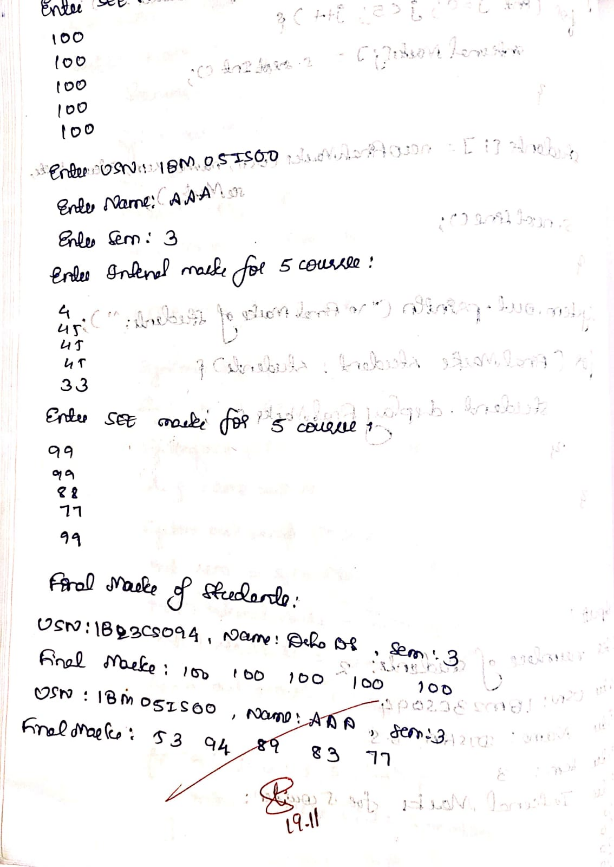 Enter SEE
100
100
100
100
100
Enter USN: 1BM05IS00
Enter Name: AAA
Enter Sem: 3
Enter Internal marks for 5 courses:
4
45
45
45
33
Enter SEE marks for 5 courses:
99
99
88
77
99
Final Marks of Students:
USN: 1B23CS094, Name: , Sem: 3
Final Marks: 100 100 100 100 100
USN: 1BM05IS00, Name: AAA, Sem: 3
Final Marks: 53 94 89 83 77
19.11